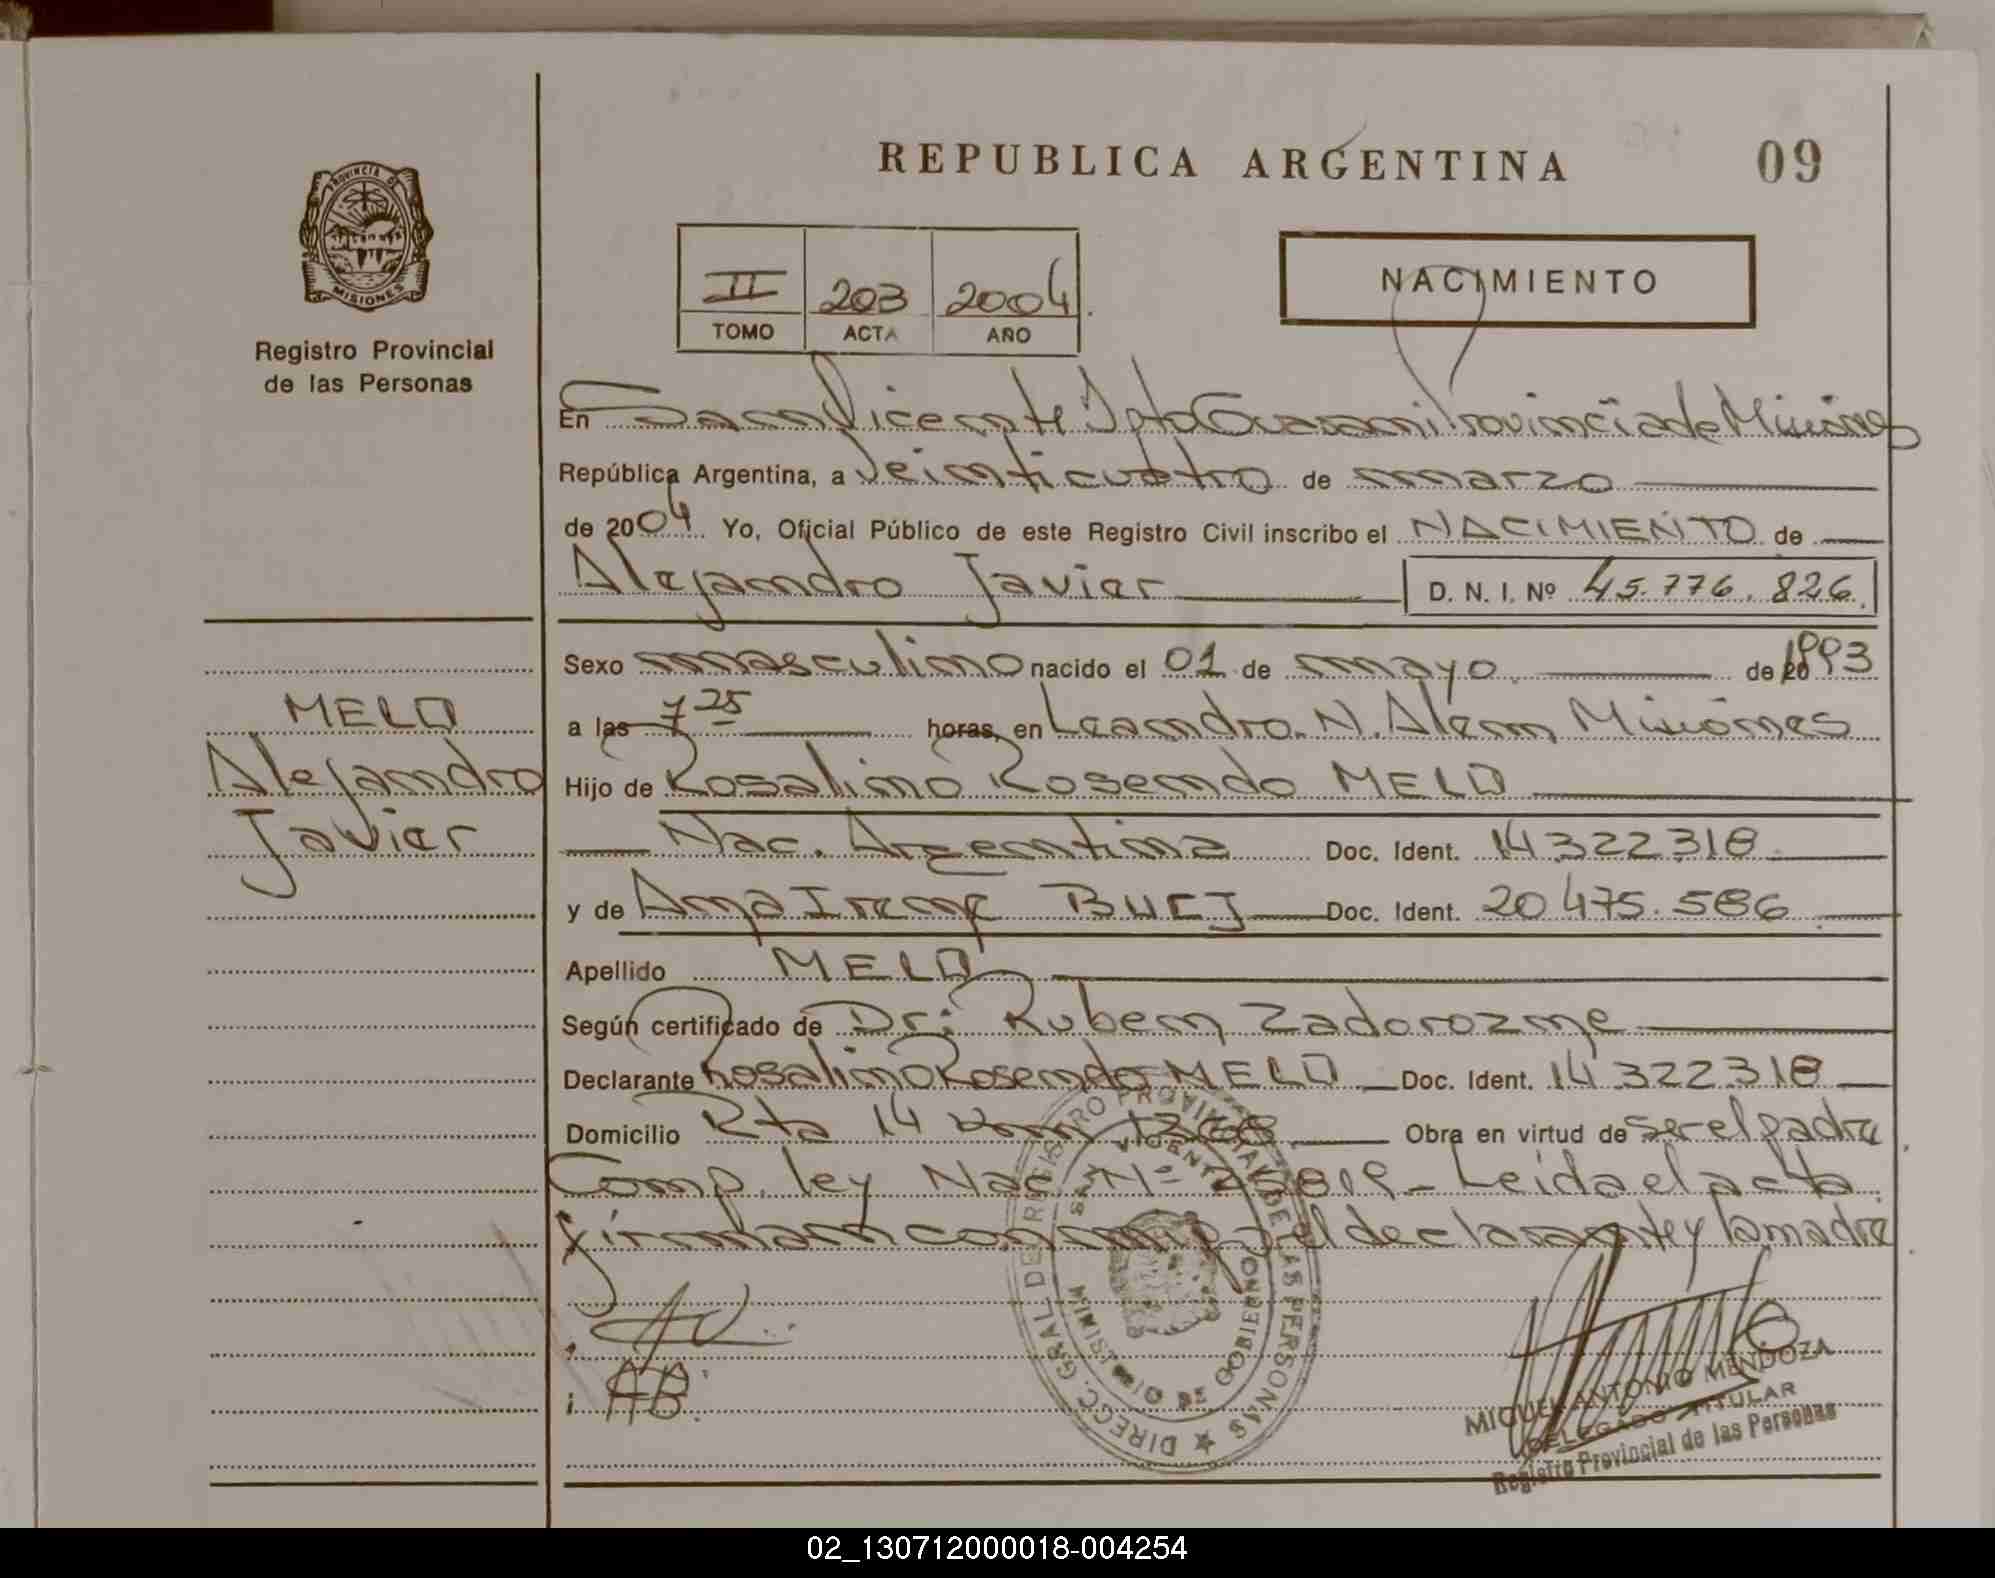 REPUBLICA ARGENTINA
09
PROVINCIA DE
MISIONES
Registro Provincial
de las Personas
II 203 2004.
TOMO ACTA AÑO
NACIMIENTO
En San Vicente Dpto Guarani Provincia de Misiones
República Argentina, a Veinticuatro de marzo
de 2004 Yo, Oficial Público de este Registro Civil inscribo el NACIMIENTO de
Alejandro Javier D. N. I. Nº 45.776.826.
Sexo masculino nacido el 01 de mayo de 1993
a las 7 25 horas, en Leandro. N. Alem Misiones
Hijo de Rosalino Rosendo MELO
Nac. Argentina Doc. Ident. 14322318
y de Ana Irene Doc. Ident. 20475.586
Apellido MELO
Según certificado de Dr: Ruben Zadorozne
Declarante Rosalino Rosendo MELO Doc. Ident. 14322318
Domicilio Rta 14 Obra en virtud de Ser el padre
Comp. ley Nac. Nº 25819 - Leída el acta
firman conmigo el declarante y la madre
MELO
Alejandro
Javier
AB
DIRECC. GRAL. DE REGISTRO PROVINCIAL DE LAS PERSONAS
SAN VICENTE
MINISTERIO DE GOBIERNO
MIGUEL ANTONIO MENDOZA
DELEGADO TITULAR
Registro Provincial de las Personas
02_130712000018-004254